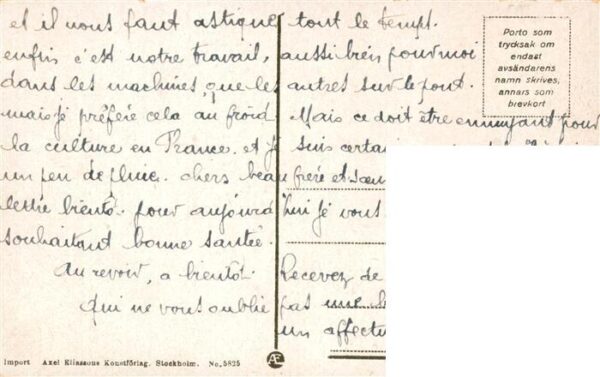 et il nous faut astique tout le tempt.
enfin c'est notre travail, aussi bien pour moi
dans les machines, que les autres sur le pont.
mais je préfére cela au froid. Mais ce doit être ennuyant pour
la culture en France. et je suis certain
un peu de pluie. chers beau frère et sœur
lettre biento. pour aujourd'hui je vous
souhaitant bonne santée.
Au revoir, a bientot. Recevez de
qui ne vous oublie pas une
un affectu
Porto som
trycksak om
endast
avsändarens
namn skrives,
annars som
brevkort
Import Axel Eliassons Konstförlag. Stockholm. No. 5825
AE